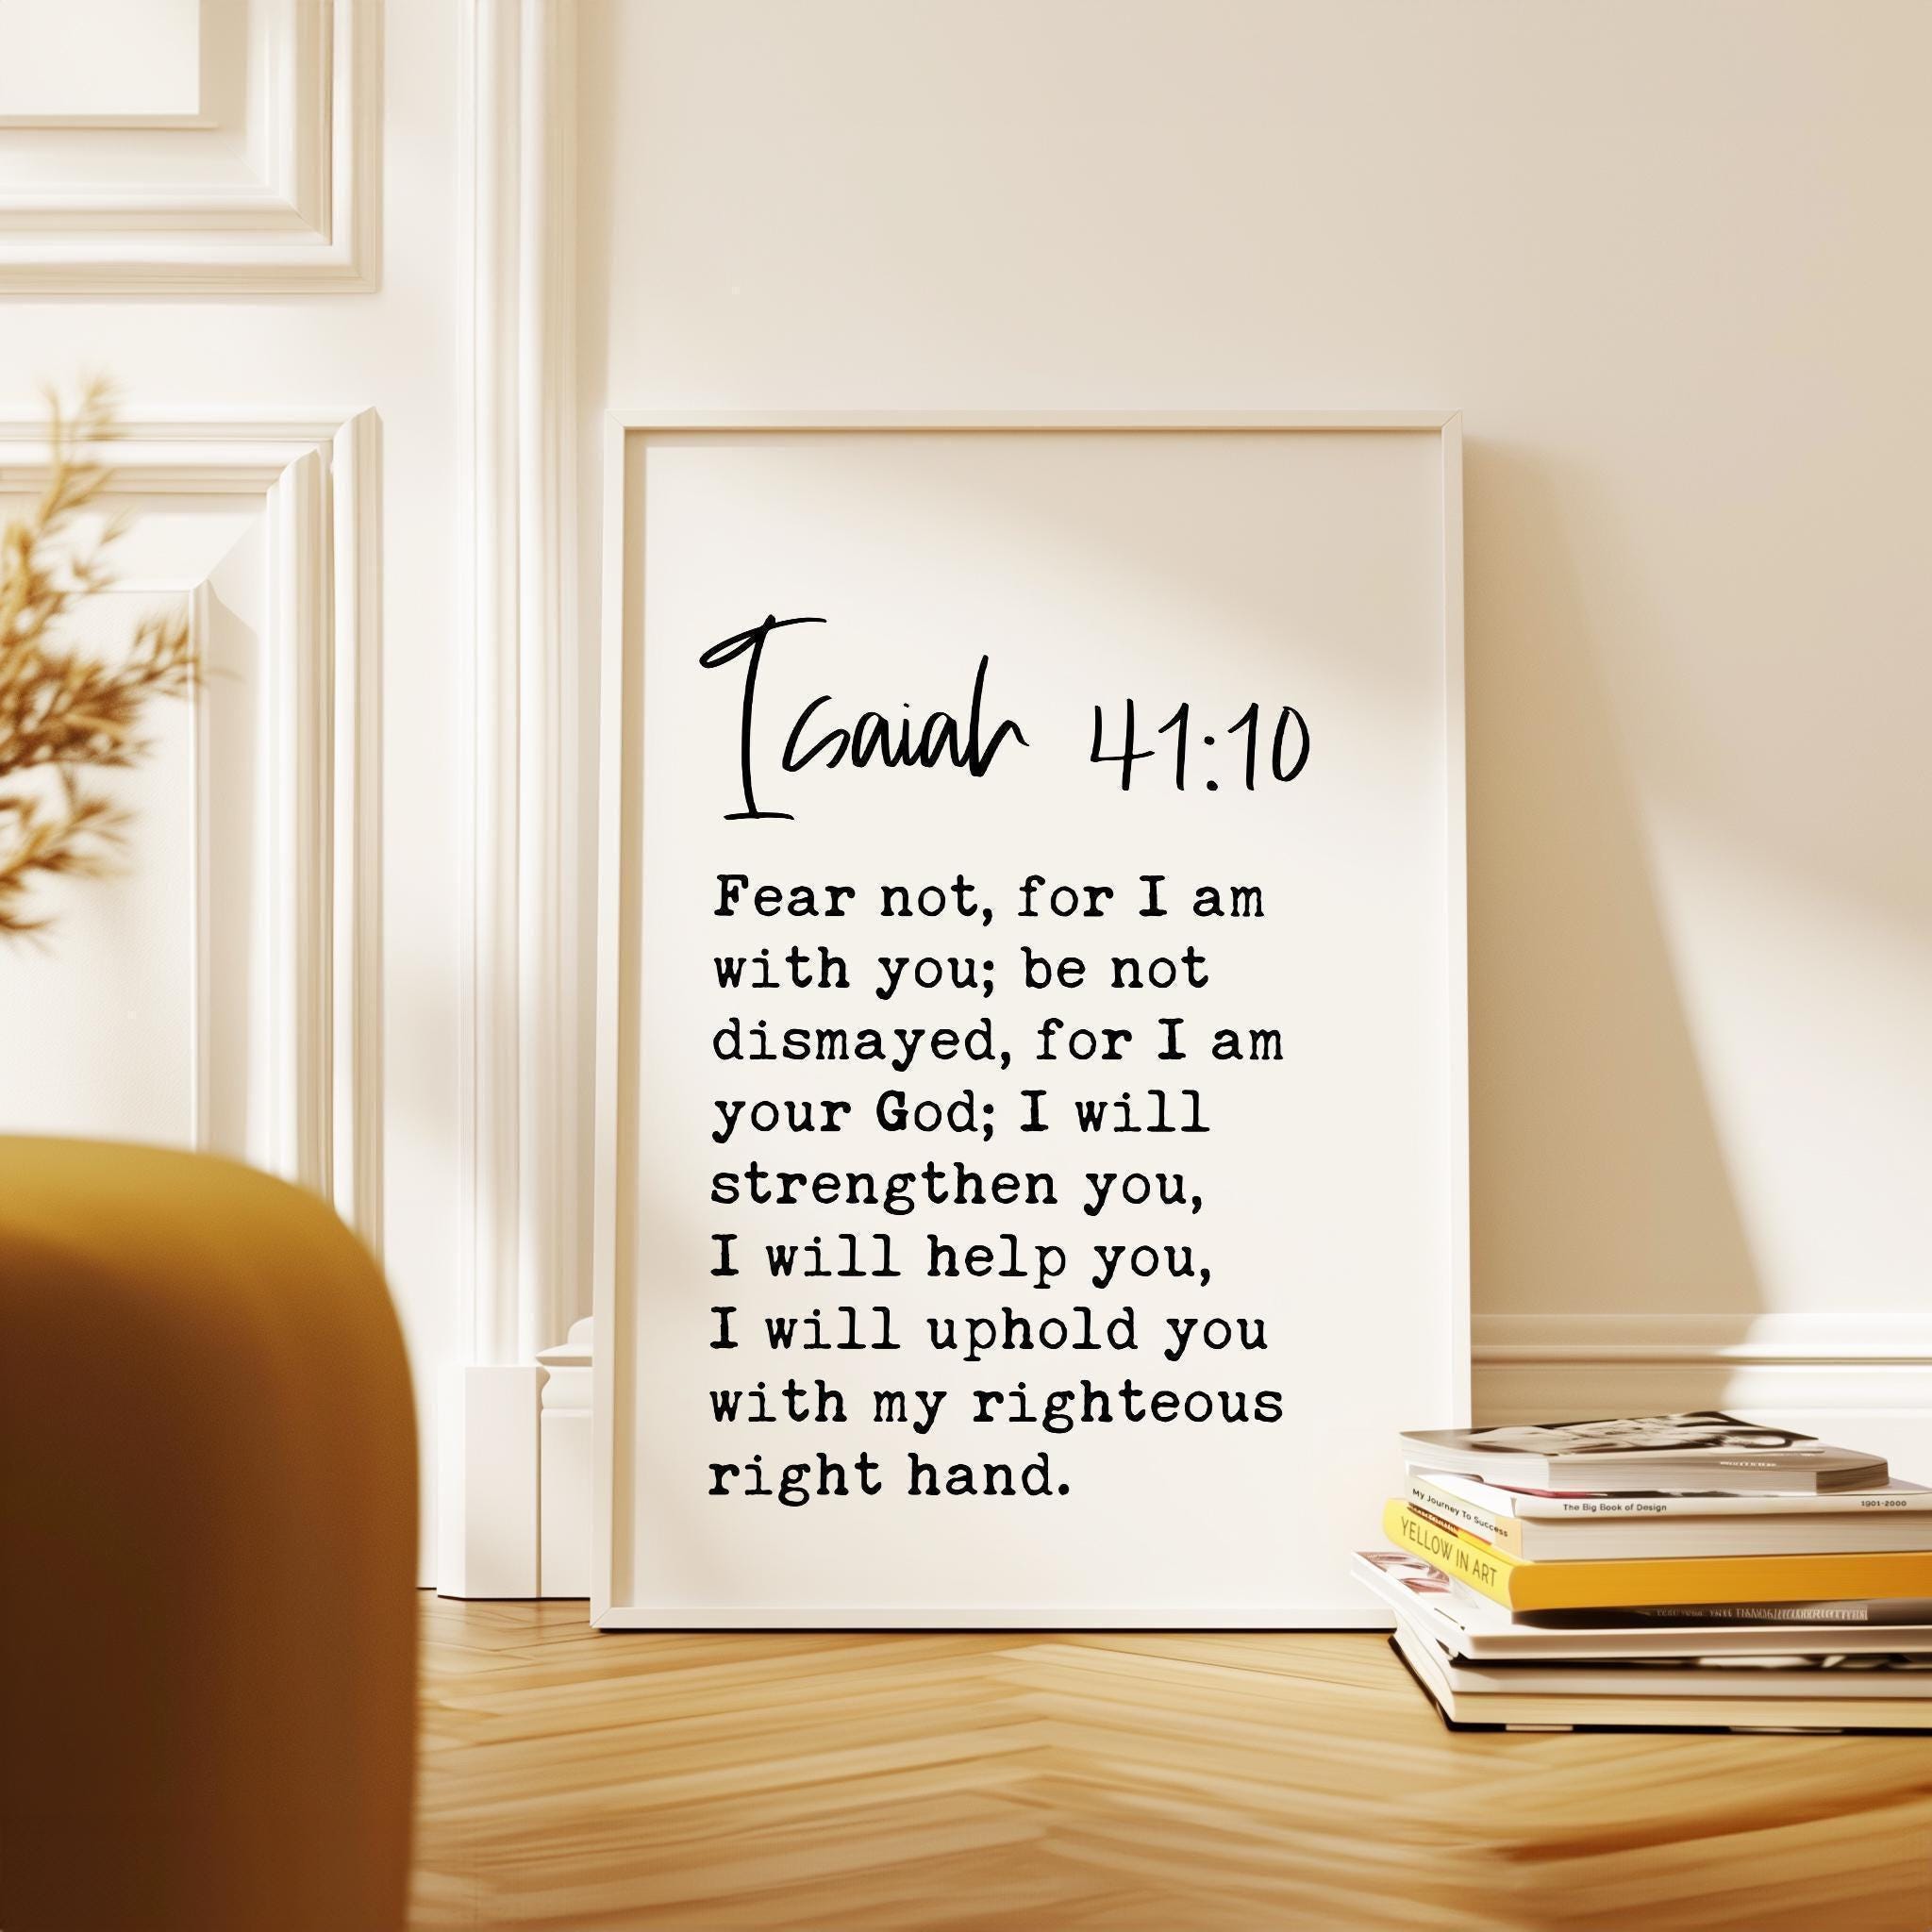 Isaiah 41:10
Fear not, for I am
with you; be not
dismayed, for I am
your God; I will
strengthen you,
I will help you,
I will uphold you
with my righteous
right hand.
My Journey To Success
The Big Book of Design
1901-2000
YELLOW IN ART